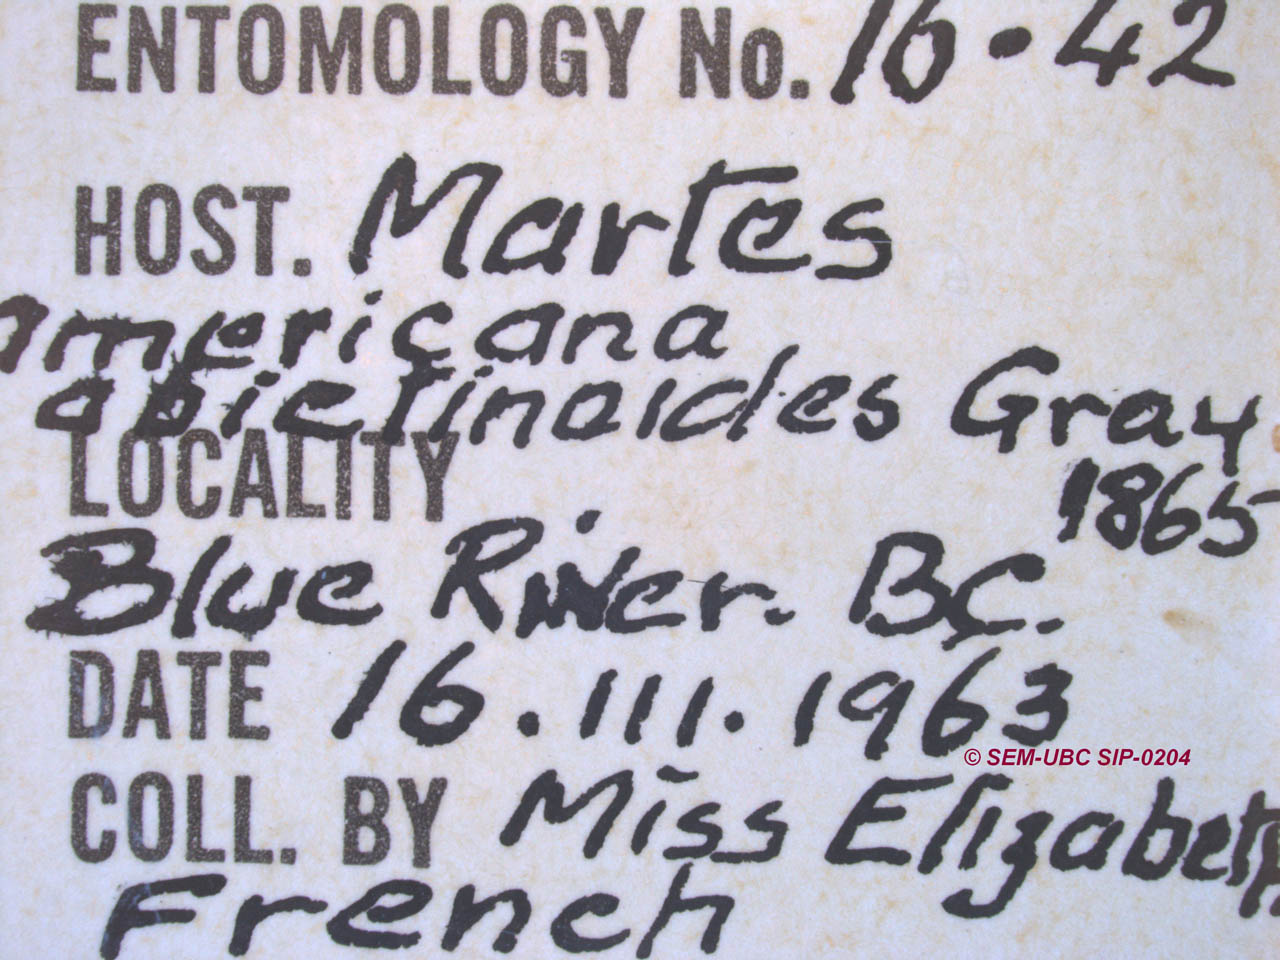 ENTOMOLOGY No. 16-42
HOST. Martes
americana
abietinoides Gray
1865
LOCALITY
Blue River. BC.
DATE 16.III.1963
© SEM-UBC SIP-0204
COLL. BY Miss Elizabeth
French